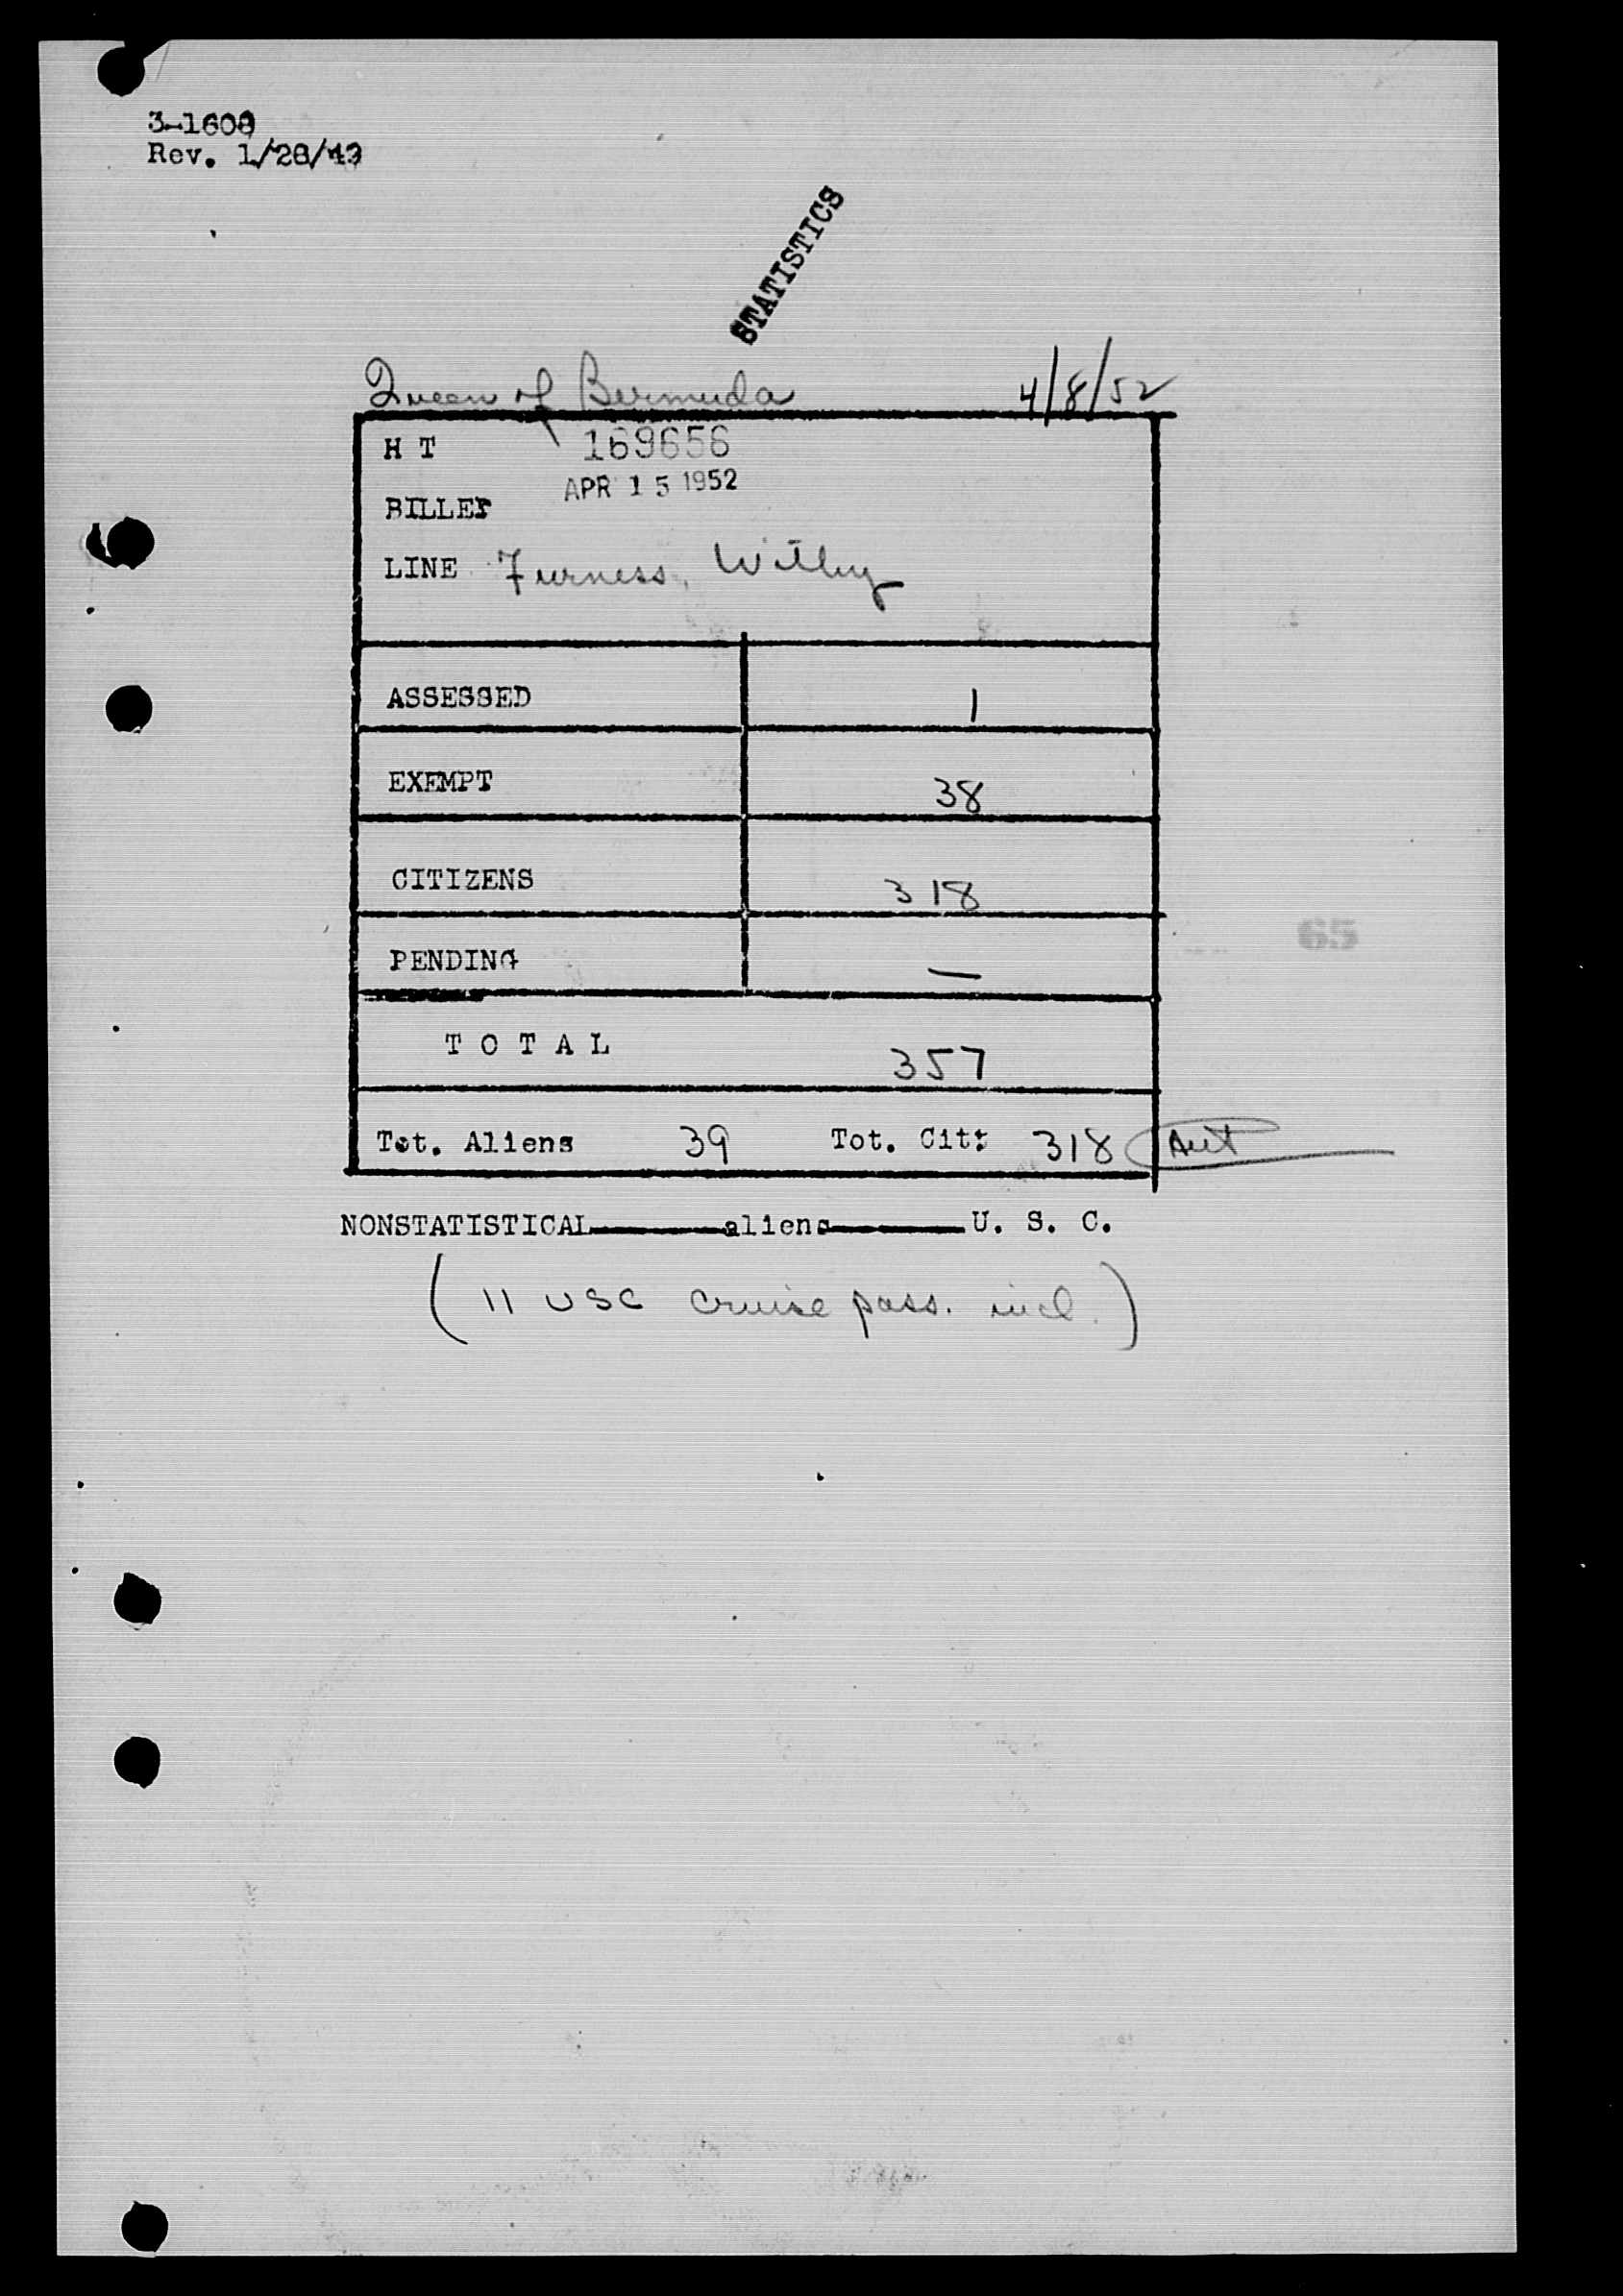 3-1608
Rev. 1/28/49
STATISTICS
Queen of Bermuda 4/8/52
H T 169656
BILLET APR 15 1952
LINE Furness, Withy
ASSESSED 1
EXEMPT 38
CITIZENS 318
PENDING —
T O T A L 357
Tot. Aliens 39 Tot. Cit: 318
NONSTATISTICAL aliens U. S. C.
(11 USC cruise pass. incl.)
65